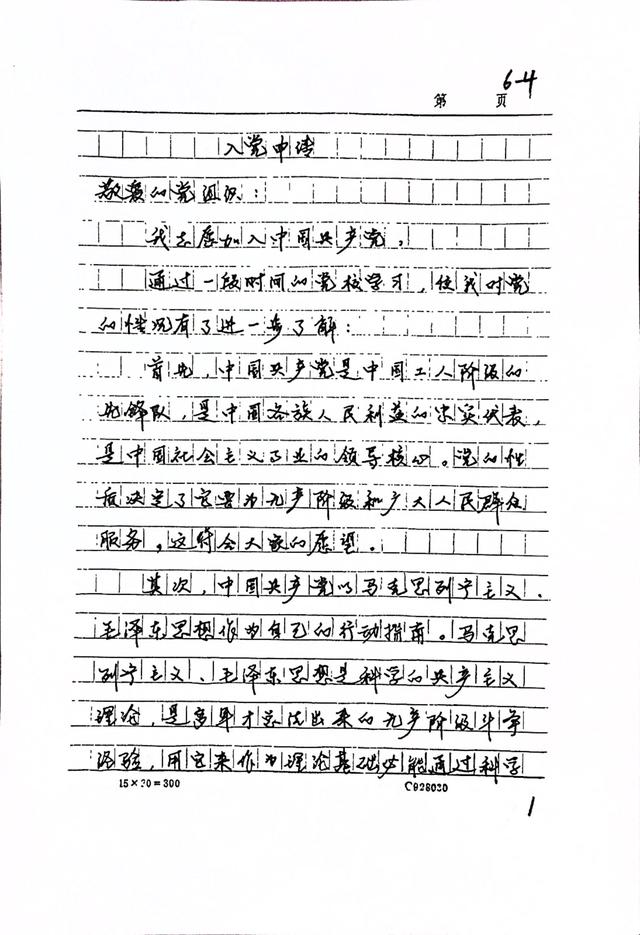 6-4
第 页
入党申请
敬爱的党组织：
我志愿加入中国共产党。
通过一段时间的党校学习，使我对党
的情况有了进一步了解：
首先，中国共产党是中国工人阶级的
先锋队，是中国各族人民利益的忠实代表，
是中国社会主义事业的领导核心。党的性
质决定了它要为无产阶级和广大人民群众
服务，这符合大家的愿望。
其次，中国共产党以马克思列宁主义、
毛泽东思想作为自己的行动指南。马克思
列宁主义、毛泽东思想是科学的共产主义
理论，是多年才总结出来的无产阶级斗争
经验，用它来作为理论基础必能通过科学
15×20=300 C928030
1